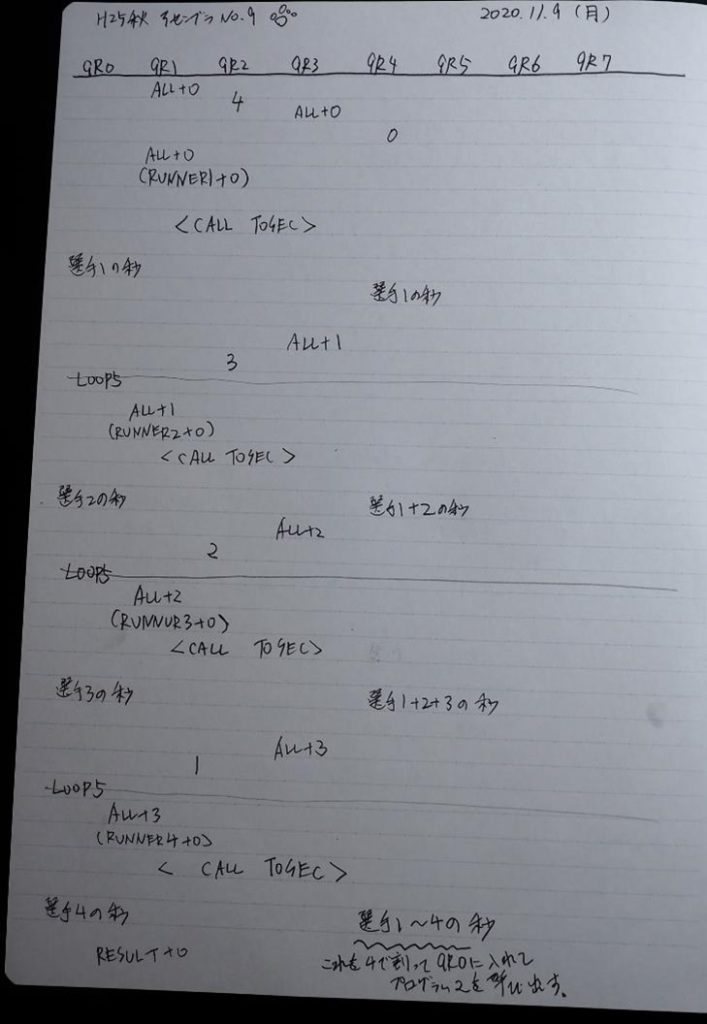 H25秋 アセンブラ No.9 2020.11.9 (月)
GR0 GR1 GR2 GR3 GR4 GR5 GR6 GR7
ALL+0
4
ALL+0
0
ALL+0
(RUNNER1+0)
<CALL TOSEC>
選手1の秒
選手1の秒
ALL+1
3
LOOP5
ALL+1
(RUNNER2+0)
<CALL TOSEC>
選手2の秒 選手1+2の秒
ALL+2
2
LOOP5
ALL+2
(RUNNUR3+0)
<CALL TOSEC>
選手3の秒 選手1+2+3の秒
ALL+3
1
LOOP5
ALL+3
(RUNNER4+0)
< CALL TOSEC>
選手4の秒 選手1〜4の秒
RESULT+0
これを4で割ってGR0に入れて
プログラム2を呼び出す。